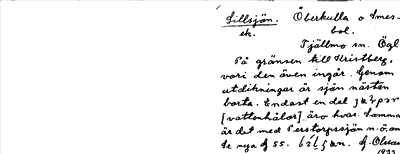 Lillsjön. Öberkulla o Smes-
ek. bol.
Tjällmo sn. Ögl
På gränsen till Kristberg,
vari den även ingår. Genom
utdikningar är sjön nästan
borta. Endast en del
[vattenhålor] äro kvar. Samma
är det med Perstorpssjön n.ö. om
Se nya 55.
1933